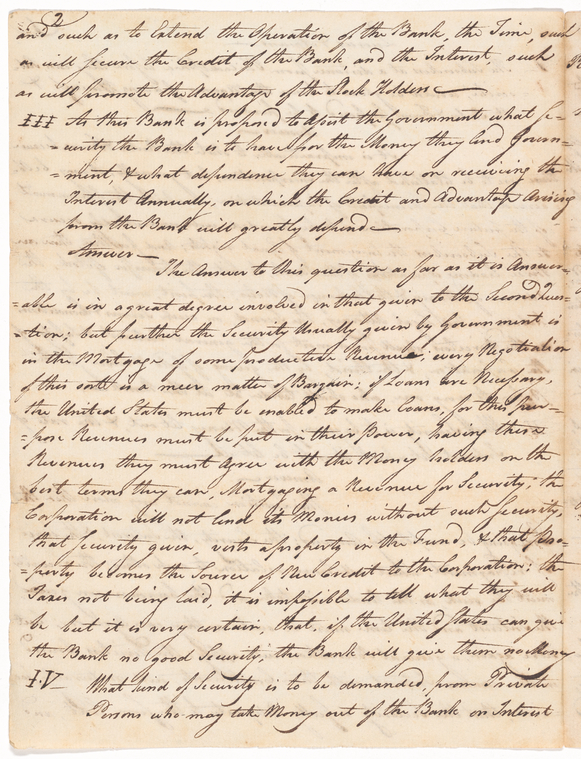 2
and such as to Extend the Operation of the Bank, the Time, such
as will secure the Credit of the Bank, and the Interest, such
as will promote the Advantage of the Stock Holders —
III As this Bank is proposed to Assist the Government what se=
=curity the Bank is to have for the Money they lend Govern=
=ment, & what dependence they can have on receiving the
Interest Annually, on which the Credit and Advantage Arising
from the Bank will greatly depend —
Answer —
The Answer to this question as far as it is Answer=
=able is in a great degree involved in that given to the Second Ques=
=tion; but further the Security Usually given by Government is
in the Mortgage of some productive Revenue; every Negotiation
of this sort is a meer matter of Bargain; if Loans are Necessary,
the United States must be enabled to make Loans, for this pur=
=pose Revenues must be put in their Power, having these
Revenues they must Agree with the Money holders on the
best terms they can, Mortgaging a Revenue for Security; the
Corporation will not lend its Monies without such Security,
that Security given, vests a property in the Fund, & that pro=
=perty becomes the Source of New Credit to the Corporation; the
Taxes not being laid, it is impossible to tell what they will
be but it is very certain, that, if the United States can give
the Bank no good Security, the Bank will give them no Money
IV— What kind of Security is to be demanded, from Private
Persons who may take Money out of the Bank on Interest